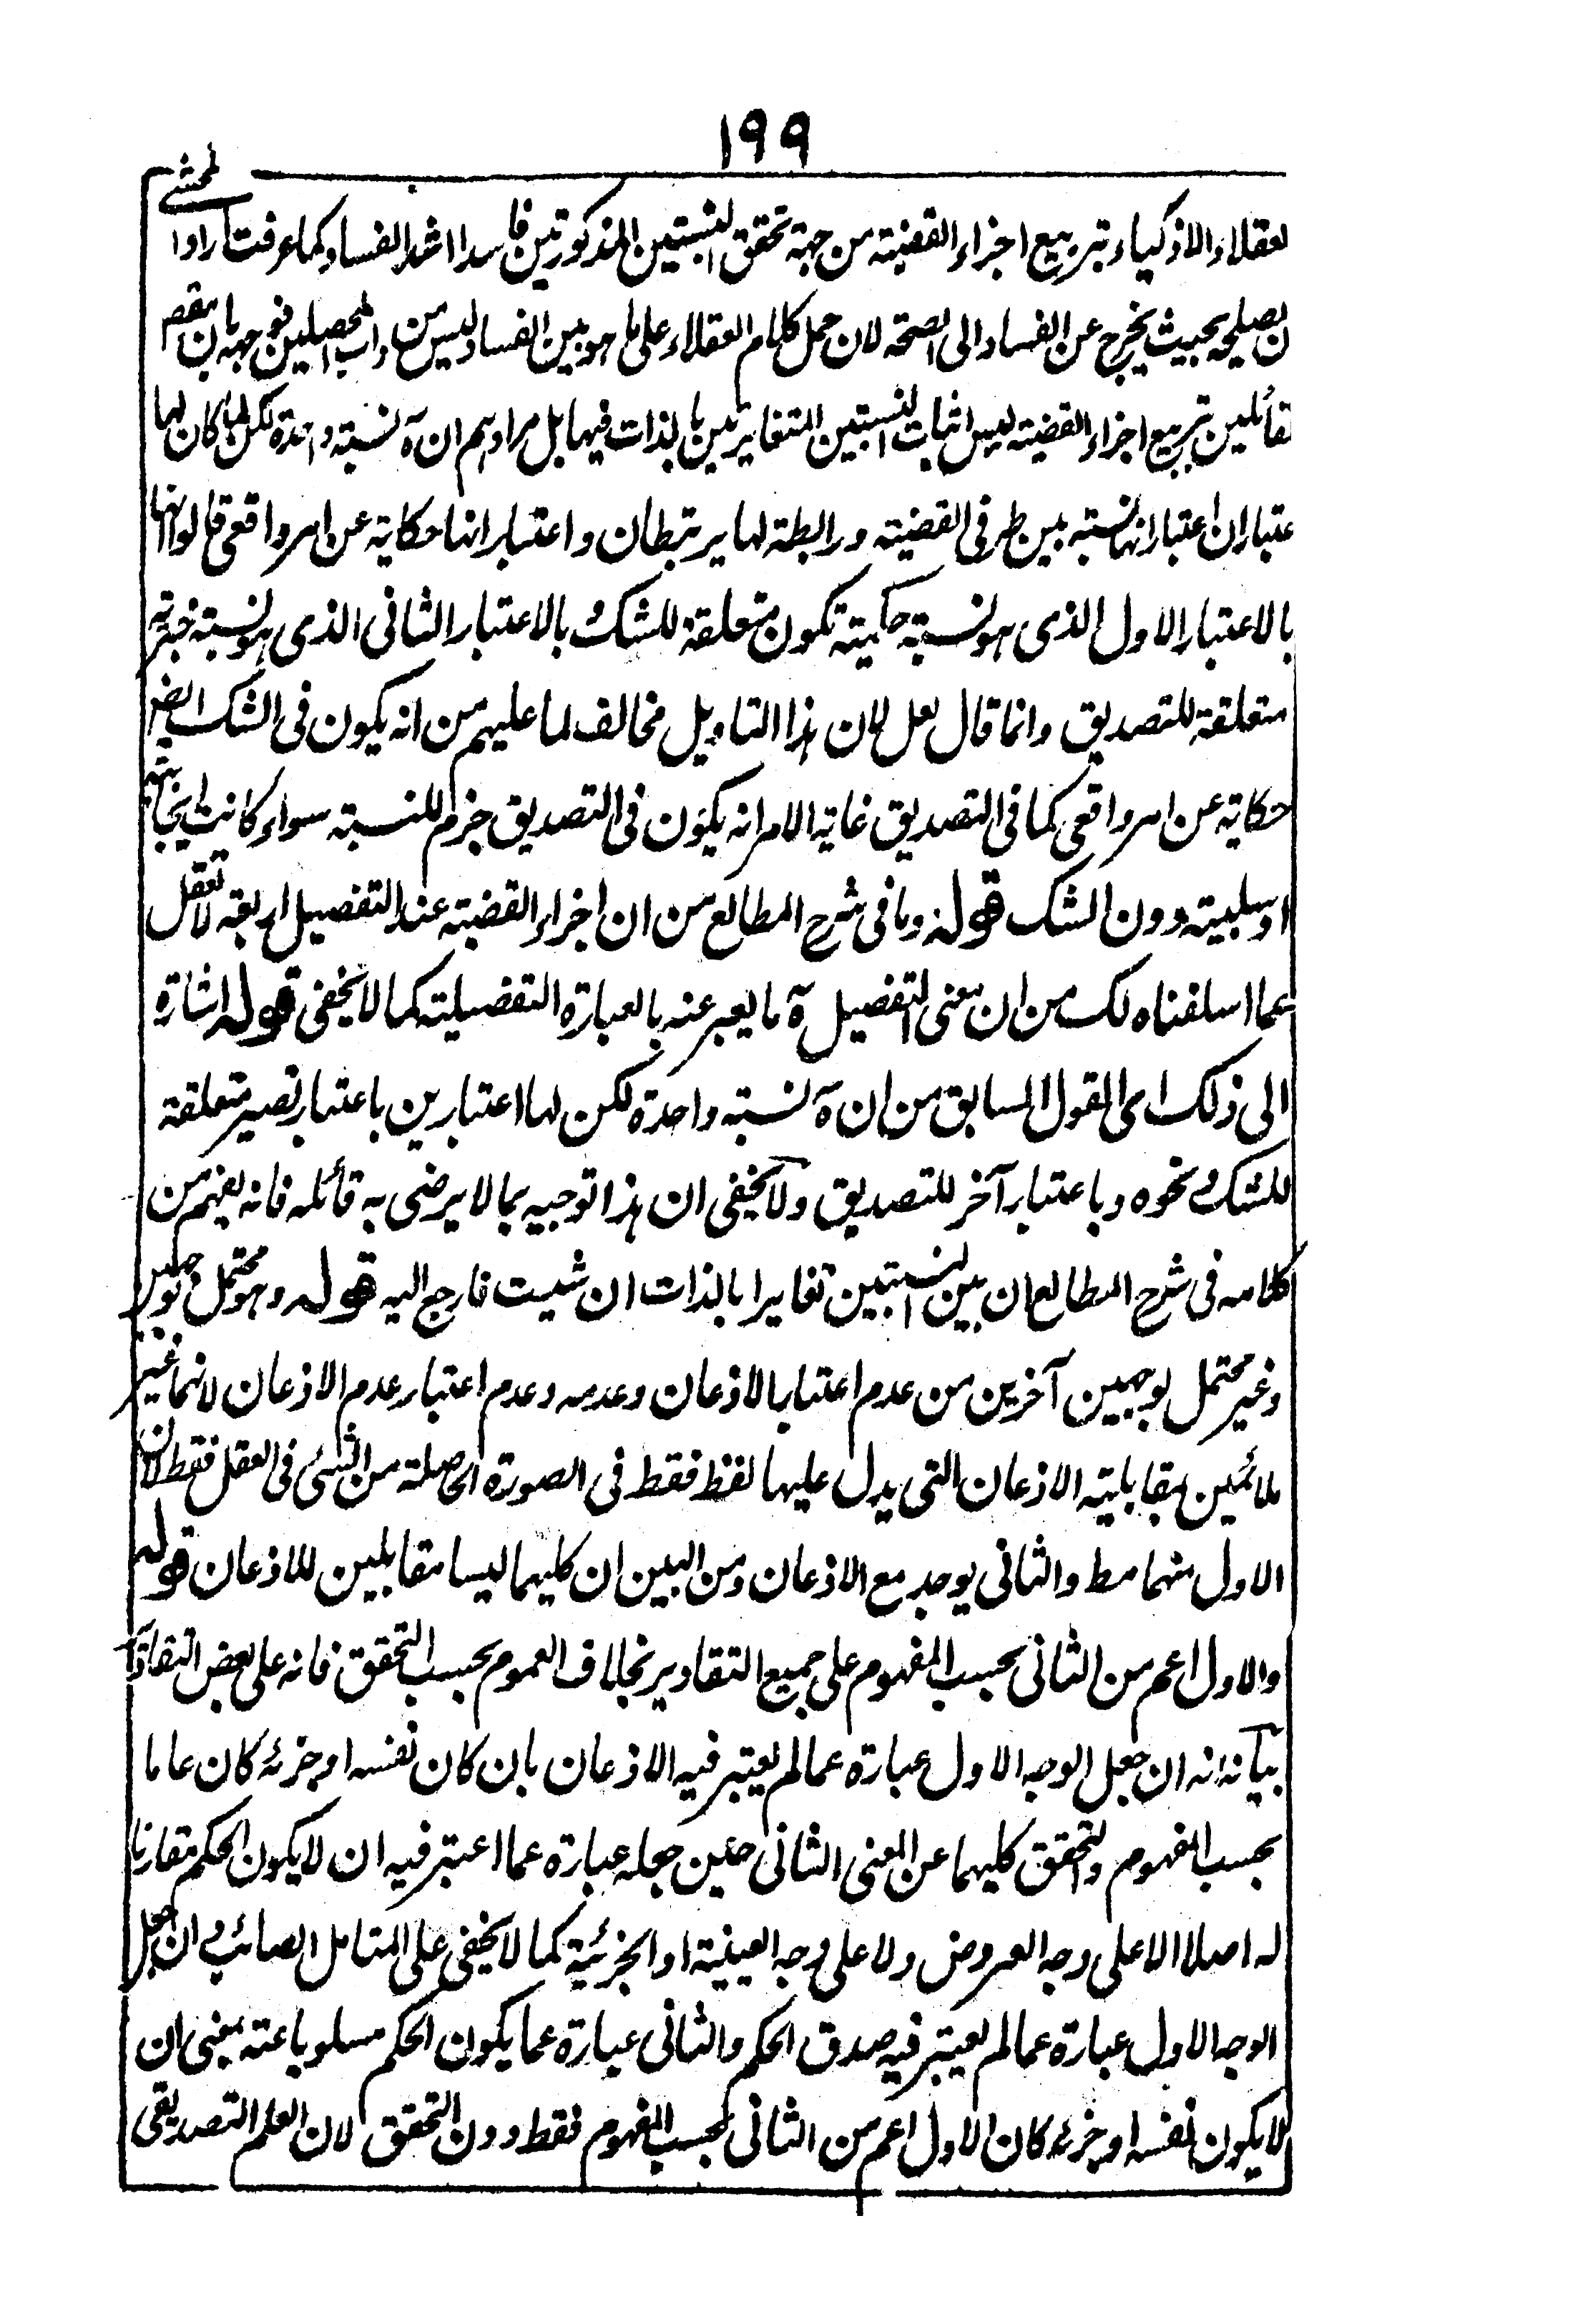 ١٩٩
لعقلاء والاذكياء بتربيع اجزاء القضية من جهة تحقق النسبتين المذكورتين فاسدا اشد الفساد كما عرفت اراد المحشي
ان يصلحه بحيث يخرج عن الفساد الى الصحة لان حمل كلام العقلاء على ما هو بين الفساد ليس من داب المحصلين فوجهه بان مقصود
لقائلين بتربيع اجزاء القضية ليس اثبات النسبتين المتغايرتين بالذات فيها بل مرادهم ان ة نسبته واحدة لكن لما كان لها
عتباران اعتبار انها نسبته بين طرفى القضية ورابطة لها يرتبطان واعتبار انها حكاية عن امر واقعى قالوا انها
بالاعتبار الاول الذى هو نسبته حكمية تكون متعلقة للشك وبالاعتبار الثانى الذى هو نسبته خبرية
متعلقة للتصديق وانما قال لعل لان هذا التاويل مخالف لما عليهم من انه يكون فى الشك ايضا
حكاية عن امر واقعى كما فى التصديق غاية الامر انه يكون فى التصديق جزم للنسبته سواء كانت ايجابية
او سلبية دون الشك قوله وما فى شرح المطالع من ان اجزاء القضية عند التفصيل اربعة لا تغفل
عما اسلفناه لك من ان معنى التفصيل ة ما يعبر عنه بالعبارة التفصيلية كما لا يخفى قوله اشارة
الى ذلك اى القول السابق من ان ة نسبته واحدة لكن لها اعتبارين باعتبار تصير متعلقة
للشك ونحوه وباعتبار آخر للتصديق ولا يخفى ان هذا توجيه بما لا يرضى به قائله فانه يفهم من
كلامه فى شرح المطالع ان بين النسبتين تغايرا بالذات ان شيت فارجع اليه قوله وهو محتمل لوجهين
وغير محتمل لوجهين آخرين من عدم اعتبار الاذعان وعدمه وعدم اعتبار عدم الاذعان لانهما غير
ملائمين بمقابلية الاذعان التى يدل عليها لفظ فقط فى الصورة الحاصلة من الشئ فى العقل فقط لان
الاول منهما مط والثانى يوجد مع الاذعان ومن البين ان كليهما ليسا متقابلين للاذعان قوله
والاول اعم من الثانى بحسب المفهوم على جميع التقادير بخلاف العموم بحسب التحقق فانه على بعض التقادير
بيانه انه ان جعل الوجه الاول عبارة عما لم يعتبر فيه الاذعان بان كان نفسه او جزئه كان عاما
بحسب المفهوم والتحقق كليهما عن المعنى الثانى حين جعله عبارة عما اعتبر فيه ان لا يكون الحكم مقارنا
له اصلا لا على وجه العروض ولا على وجه العينية او الجزئية كما لا يخفى على المتامل الصائب وان جعل
الوجه الاول عبارة عما لم يعتبر فيه صدق الحكم والثانى عبارة عما يكون الحكم مسلوبا عنه بمعنى ان
لا يكون نفسه او جزئه كان الاول اعم من الثانى بحسب المفهوم فقط دون التحقق لان العلم التصديقى